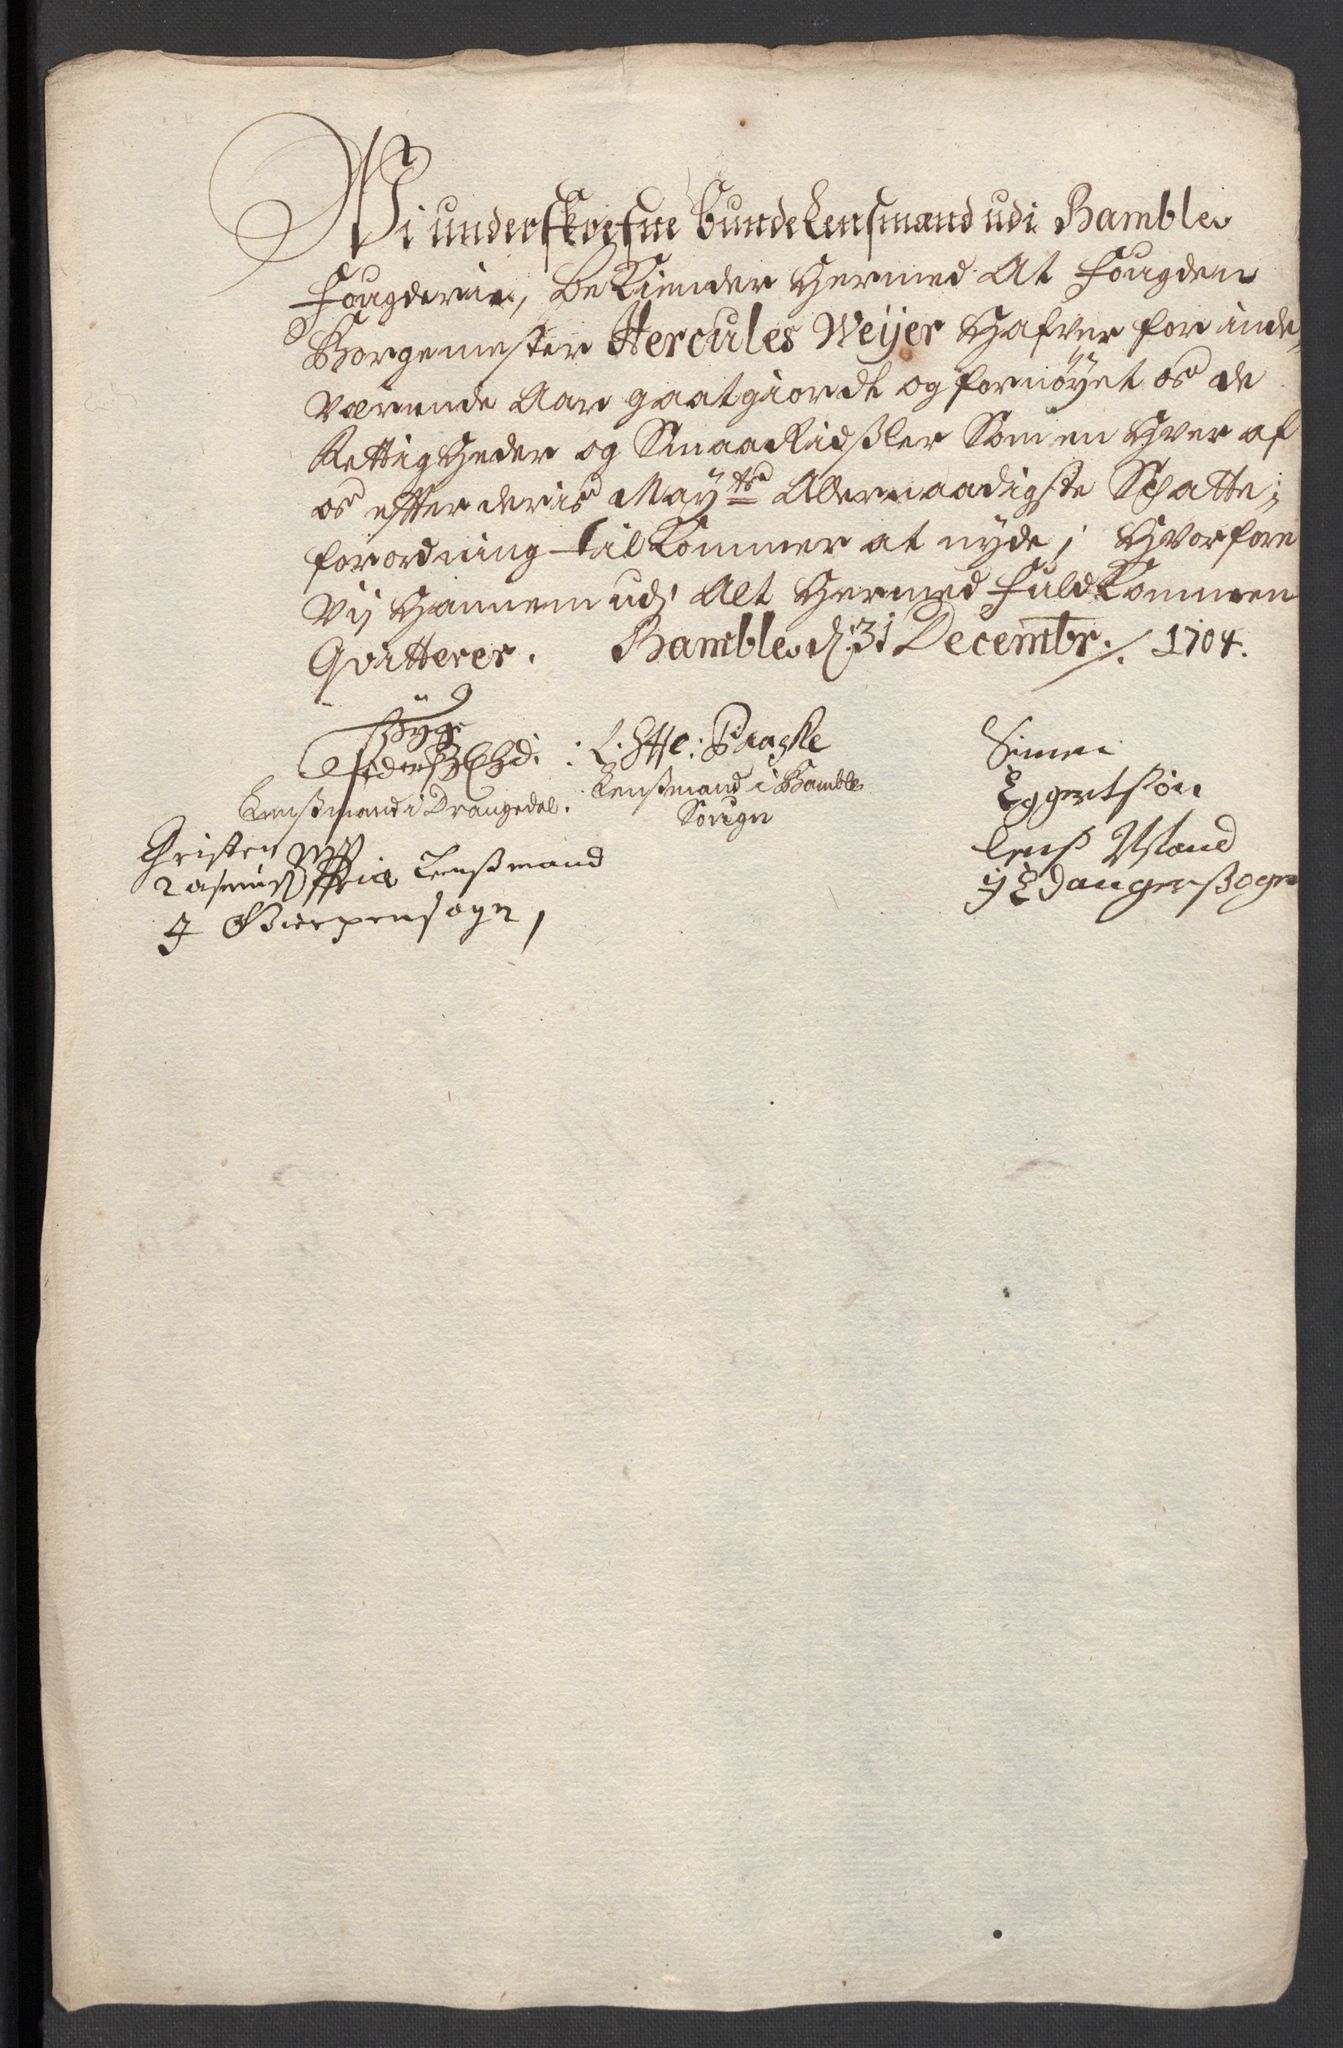 Vi underskrefne bunde Lensmænd udi Bamble
Fougderie, be Kiender hermed At Fougden
Borgemester Hercules Weijer hafver for inde,,
Værende Aar gaatgiordt og fornøyet os de
Rettigheder og Smaa Ridßler Som en hver af
os efter deris Mayts Allernaadigste Schatte,,
forordning tilkommer at nyde, Hvorfore
Vij hannem udj Alt hermed Fuldkommen
Qvitterer. Bamble d: 31 Decembr: 1704.
Lensmand i Drangedal.
Paaske
Lenßmand i Bamble
Sougn
Simen
Eggertsøn
lenß Mand
ij Edangersßogn
Christen
Rasmus Lenßmand
J Gierpensogn,